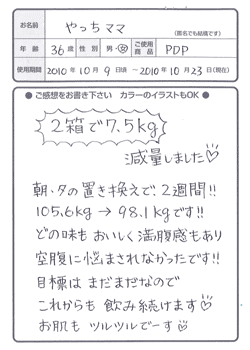 お名前 やっちママ (匿名でも結構です)
年齢 36歳 性別 男・女 ご使用商品 PDP
使用期間 2010年10月9日頃 ～2010年10月23日(現在)
●ご感想をお書き下さい カラーのイラストもOK●
2箱で7.5kg
減量しました♡
朝・夕の置き換えで、2週間!!
105.6kg → 98.1kgです!!
どの味もおいしく満腹感もあり
空腹に悩まされなかったです!!
目標はまだまだなので
これからも飲み続けます♡
お肌もツルツルでーす